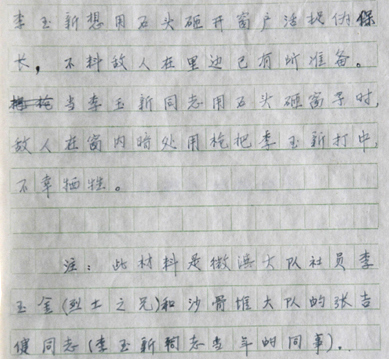 李玉新想用石头砸开窗户活捉伪保
长，不料敌人在里边已有所准备。
当李玉新同志用石头砸窗子时，
敌人在窗内暗处用枪把李玉新打中，
不幸牺牲。
注：此材料是微浜大队社员李
玉金(烈士之兄)和沙骨堆大队的张吉
健同志(李玉新同志当年的同事)。